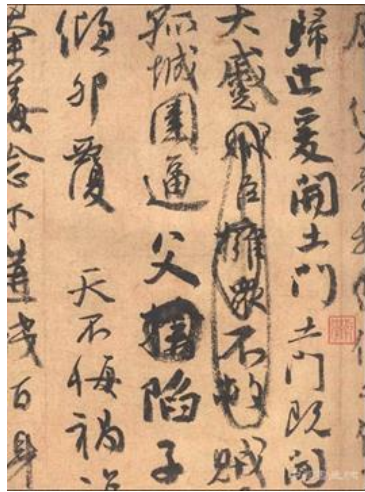 歸止爰開土門土門既開
大蹙賊臣擁衆不救賊
孤城圍逼父陷子
傾卵覆 天不悔禍
荼毒念尔遘殘百身